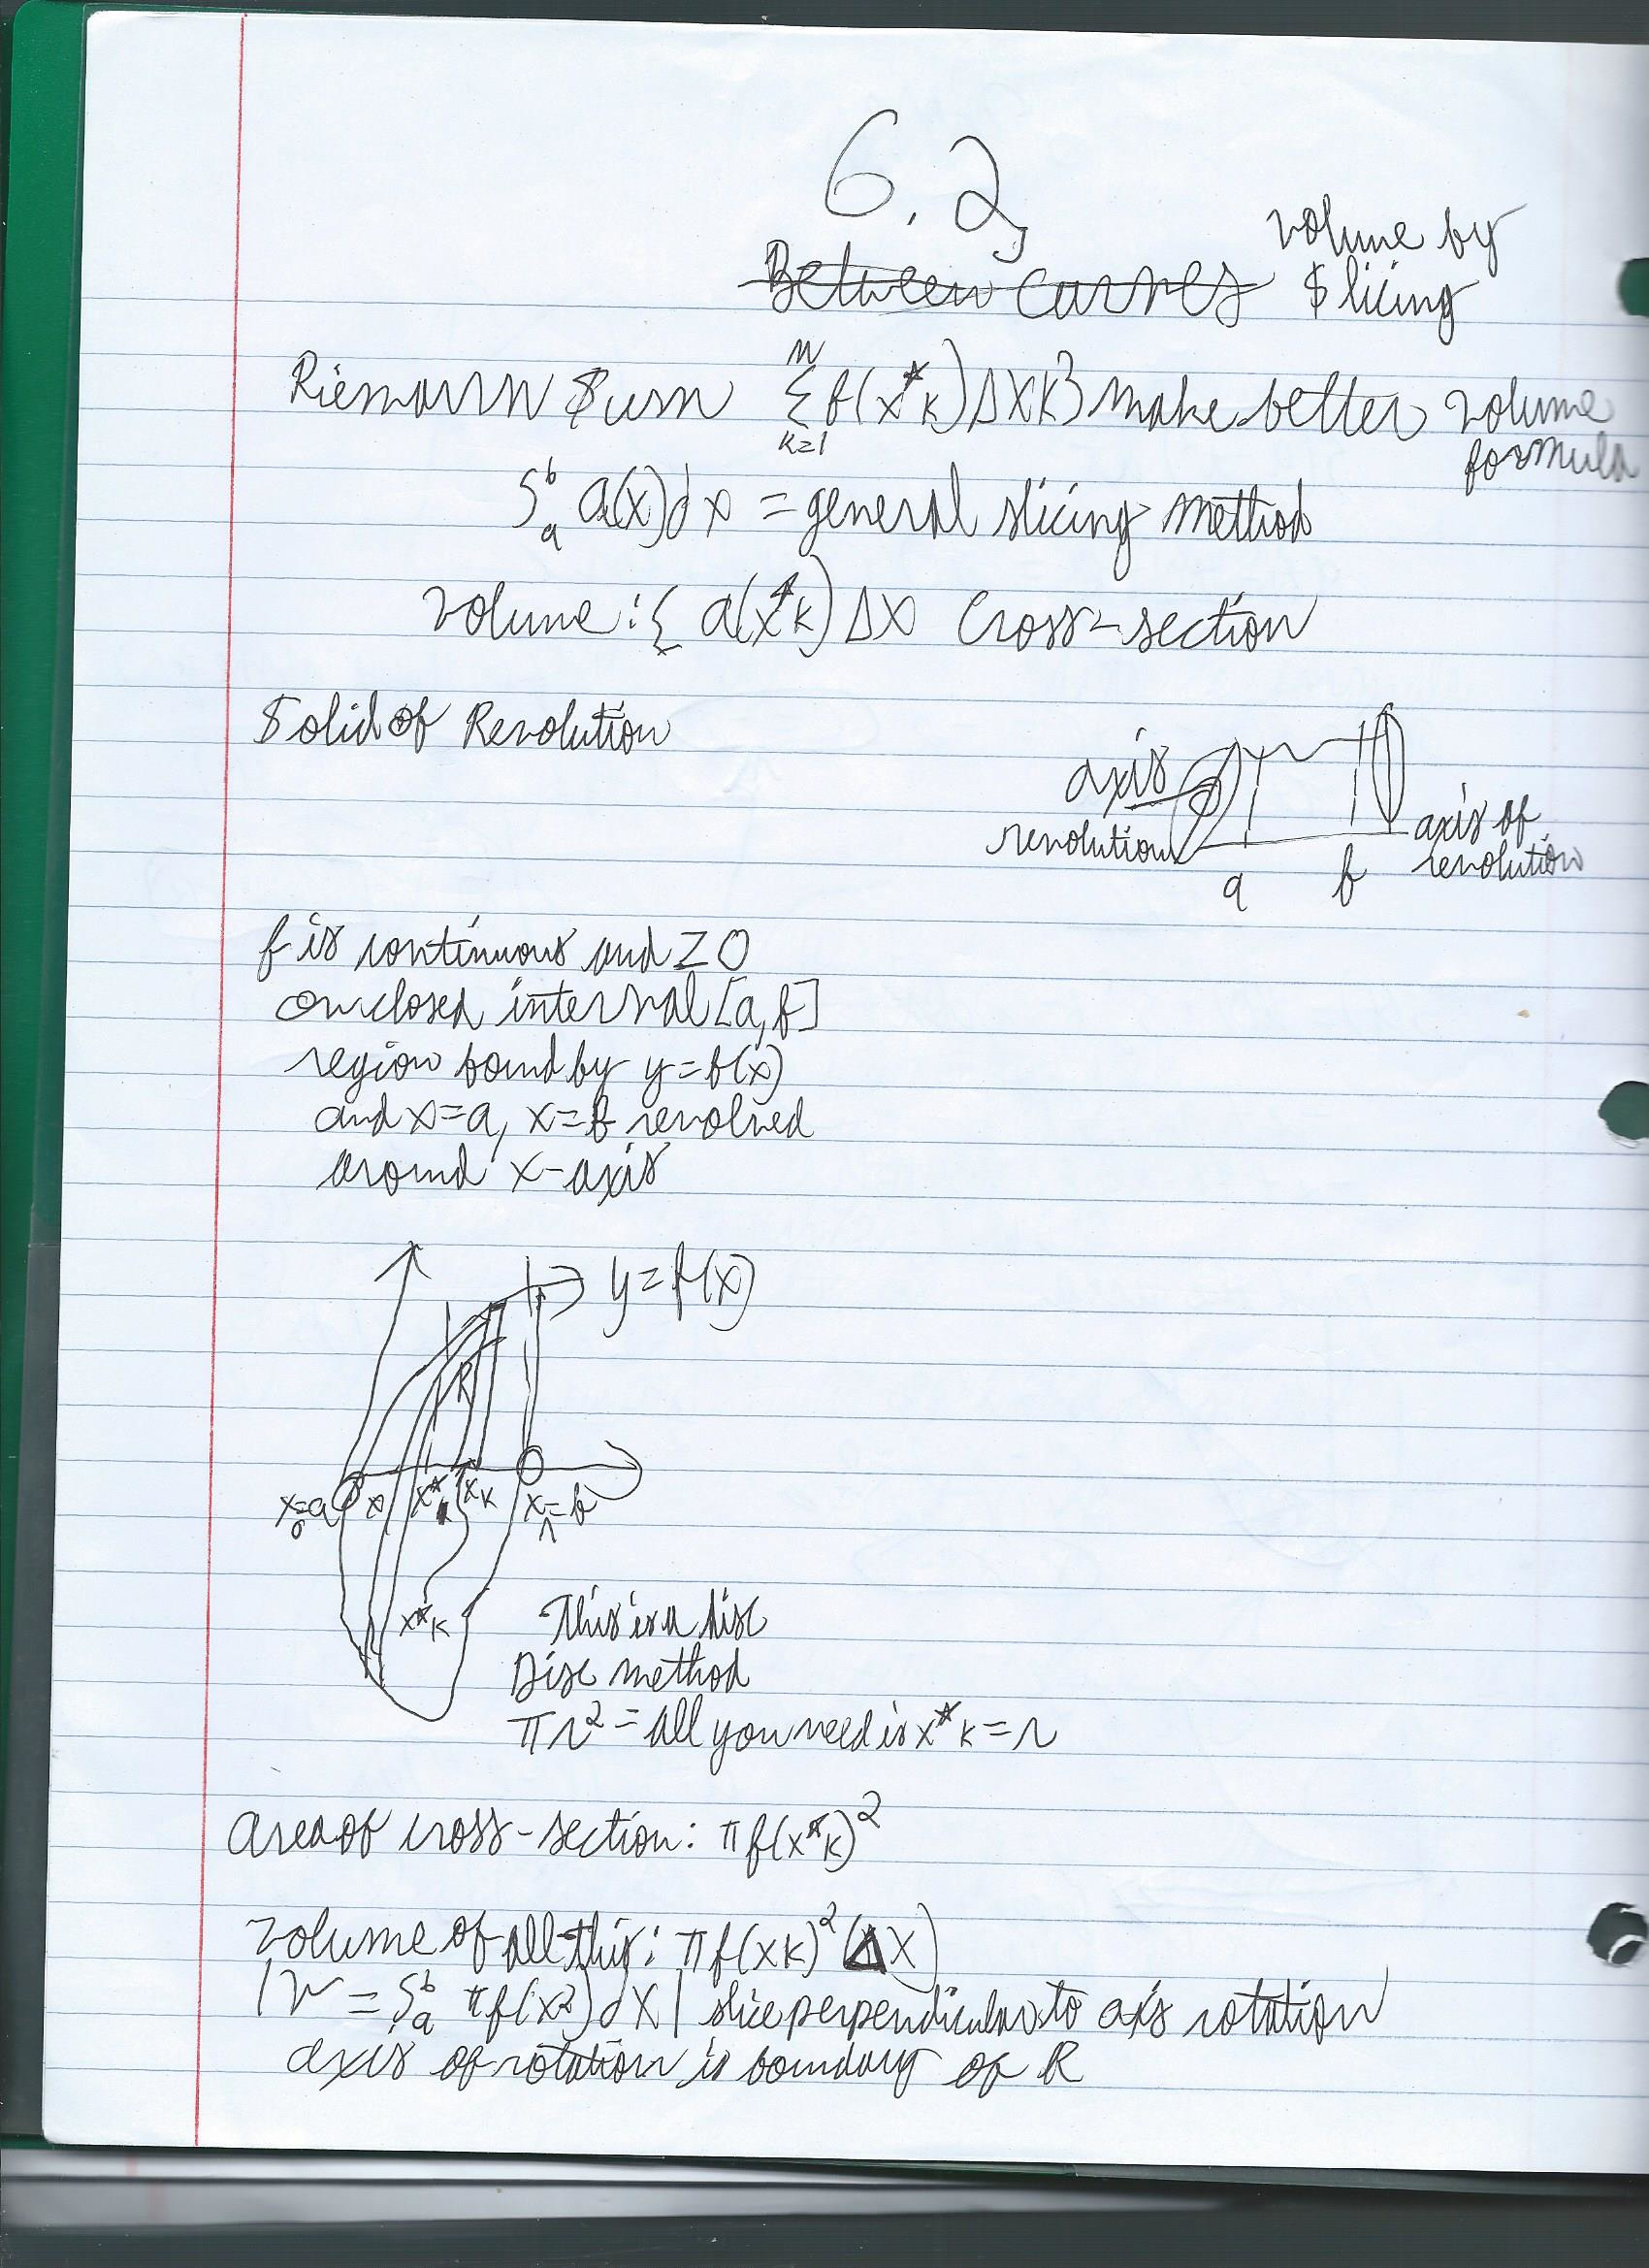 6.2
Between Curves volume by
Slicing
Riemann Sum n Σ k=1 f(x*k)Δxk} make better volume
formula
∫ᵇₐ a(x)dx = general slicing method
volume: Σ a(x*k) Δx Cross-section
Solid of Revolution
axis
revolution
a b
axis of
revolution
f is continuous and ≥ 0
on closed interval [a,b]
region bound by y=f(x)
and x=a, x=b revolved
around x-axis
y=f(x)
R
x₀=a x x*k xk xₙ=b
x*k
This is a disc
Disc method
πr² = all you need is x*k = r
Area of cross-section: π f(x*k)²
Volume of all this: π f(xk)² (Δx)
|V = ∫ᵇₐ πf(x²)dx| slice perpendicular to axis rotation
axis of rotation is boundary of R